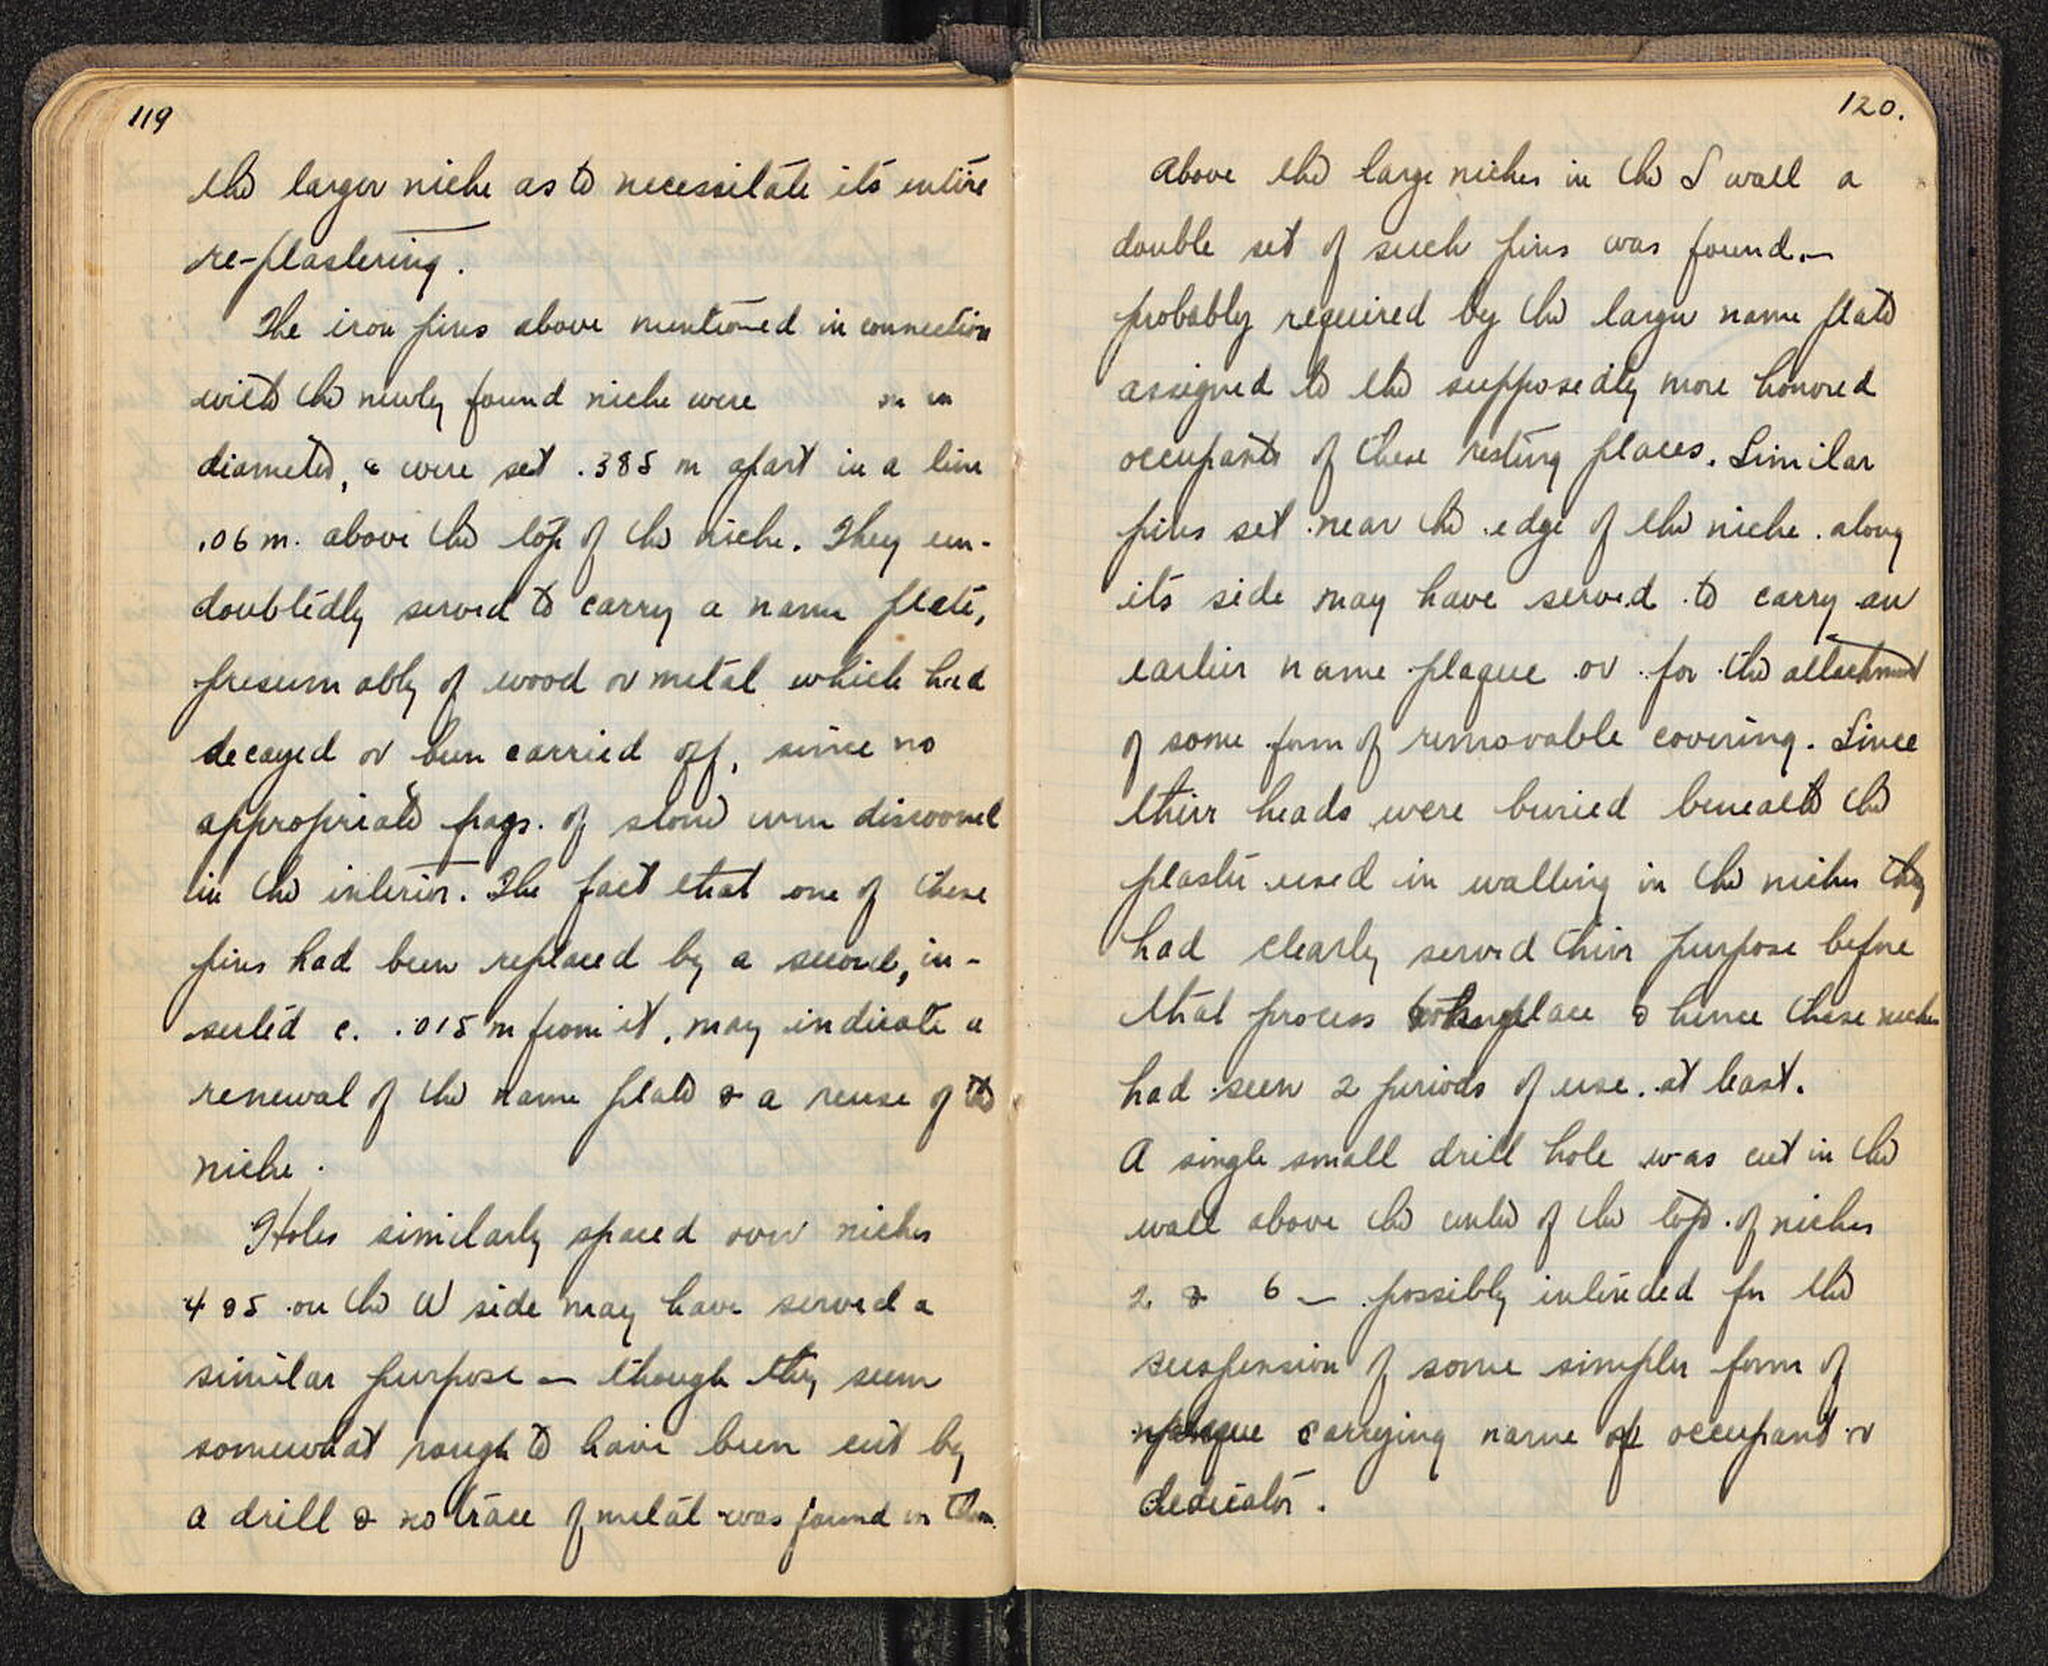 119
the larger niche as to necessitate its entire
re-plastering.
The iron pins above mentioned in connection
with the newly found niche were m in
diameter, & were set .385 m apart in a line
.06 m. above the top of the niche. They un-
doubtedly served to carry a name plate,
presumably of wood or metal which had
decayed or been carried off, since no
appropriate frags. of stone were discovered
in the interior. The fact that one of these
pins had been replaced by a second, in-
serted c. .015 m from it, may indicate a
renewal of the name plate & a reuse of the
niche.
Holes similarly spaced over niches
4 & 5 on the W side may have served a
similar purpose — though they seem
somewhat rough to have been cut by
a drill & no trace of metal was found in them.
120.
Above the large niches in the S wall a
double set of such pins was found. —
probably required by the larger name plate
assigned to the supposedly more honored
occupants of these resting places. Similar
pins set near the edge of the niche along
its side may have served to carry an
earlier name plaque or for the attachment
of some form of removable covering. Since
their heads were buried beneath the
plaster used in walling in the niches they
had clearly served their purpose before
that process place & hence these niches
had seen 2 periods of use at least.
A single small drill hole was cut in the
wall above the center of the top of niches
2 & 6 — possibly intended for the
suspension of some simpler form of
plaque carrying name of occupant or
dedicator.